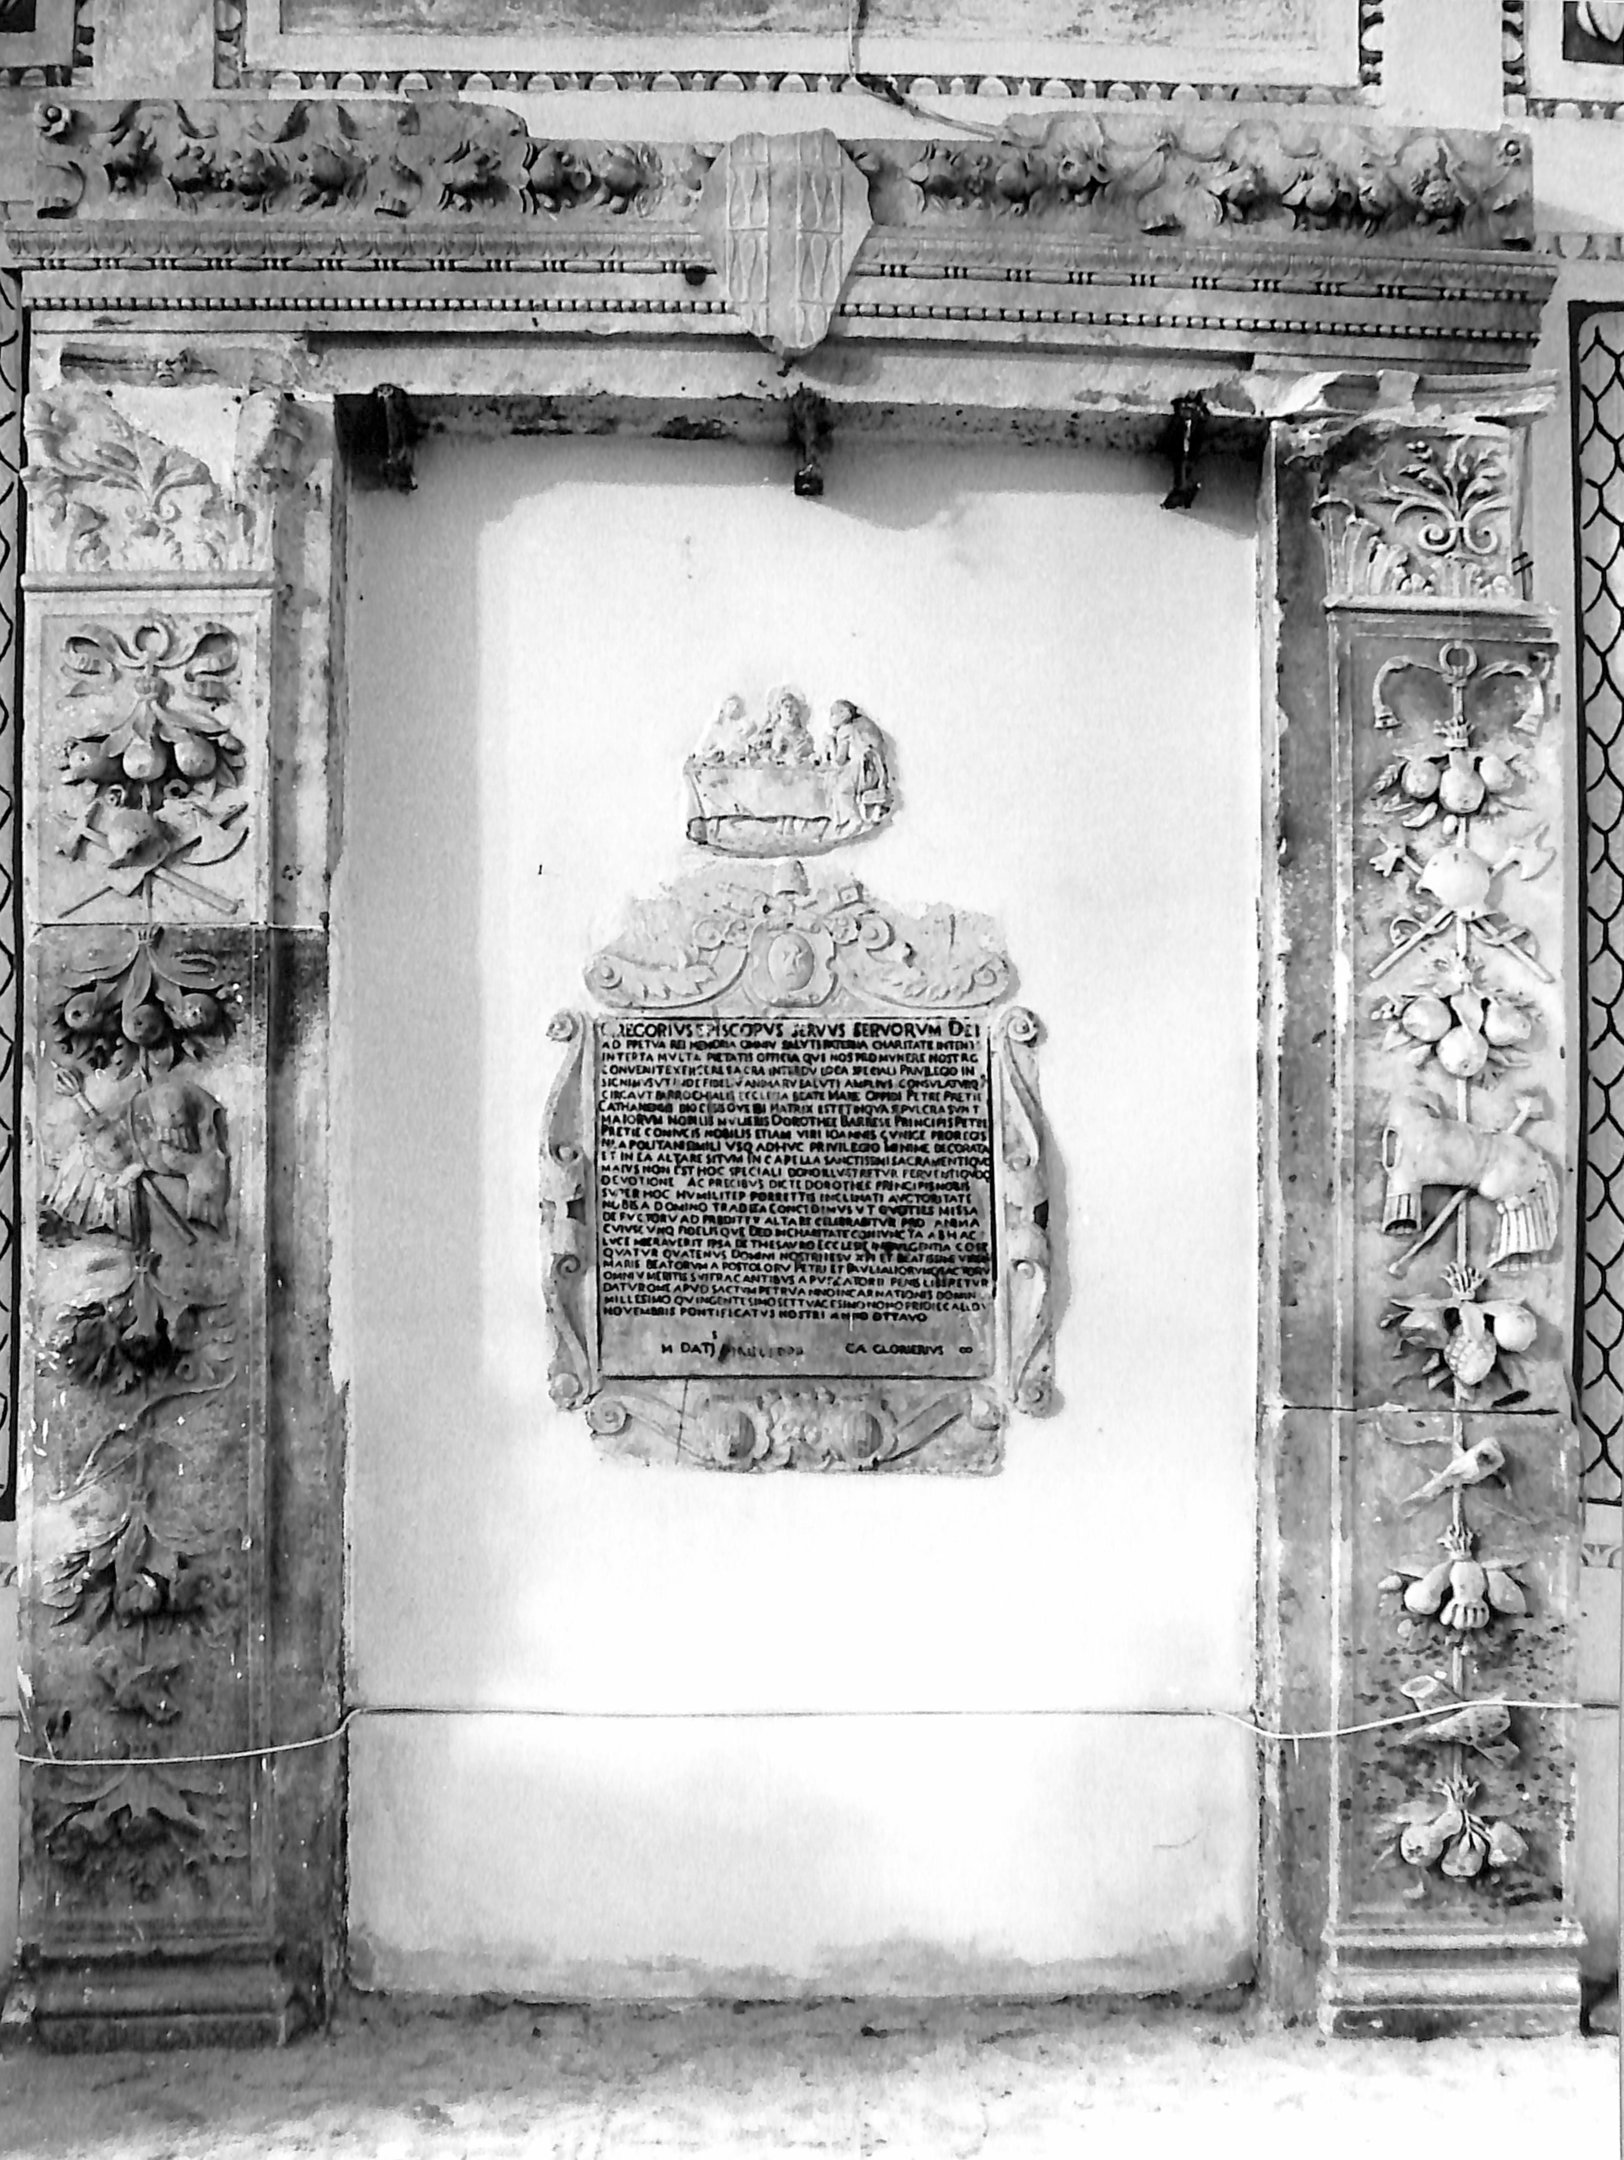 GREGORIVS EPISCOPVS SERVVS SERVORVM DEI
AD PPETVA REI MEMORIA OMNIV SALVTI PATERNA CHARITATE INTENTI
INTERTA MVLTA PIETATIS OFFICIA QVE NOS PRO MVNERE NOSTRO
CONVENIT EXERCERE SACRA INTERDV LOCA SPECIALI PRIVILEGIO IN
SIGNIMVS VT INDE FIDELIV ANIMARV SALVTI AMPLIVS CONSVLATVR
CIRCA VT PARROCHIALIS ECCLESIA BEATE MARIE OPPIDI PETRE PRETIE
CATHANENSIS DIOCESIS QVE IBI MATRIX EST ET IN QVA SEPVLCRA SVNT
MAIORVM NOBILIS MVLIERIS DOROTHEE BARRESE PRINCIPIS PETRE
PRETIE CONIVGIS NOBILIS ETIAM VIRI IOANNIS CVNICE PROREGIS
NEAPOLITANI SIMILI VSQ ADHVC PRIVILEGIO MINIME DECORATA
ET IN EA ALTARE SITVM IN CAPELLA SANCTISSIMI SACRAMENTI QVO
MAIVS NON EST HOC SPECIALI DONO ILLVSTRETVR FERVENTIQVOQ
DEVOTIONE AC PRECIBVS DICTE DOROTHEE PRINCIPIS NOBIS
SVPER HOC HVMILITER PORRETTIS INCLINATI AVCTORITATE
NOBIS A DOMINO TRADITA CONCEDIMVS VT QVOTIES MISSA
DEFVCTORV AD PREDITTV ALTARE CELEBRABITVR PRO ANIMA
CVIVSCVNQ FIDELIS QVE DEO IN CHARITATE CONIVNCTA AB HAC
LVCE MIGRAVERIT IPSA DE THESAVRO ECCLESIE INDVLGENTIA COSE
QVATVR QVATENVS DOMINI NOSTRI IESV XPI ET BEATISSIME VIRGIS
MARIE BEATORVM APOSTOLORV PETRI ET PAVLI ALIORVMQ SACTORV
OMNIV MERITIS SVFFRAGANTIBVS A PVRGATORII PENIS LIBERETVR
DATV ROME APVD SACTVM PETRV ANNO INCARNATIONIS DOMIN
MILLESIMO QVINGENTESIMO SETTVAGESIMO NONO PRIDIE CALLDI
NOVEMBRIS PONTIFICATVS NOSTRI ANNO OTTAVO
M DATI CA GLORIERIVS